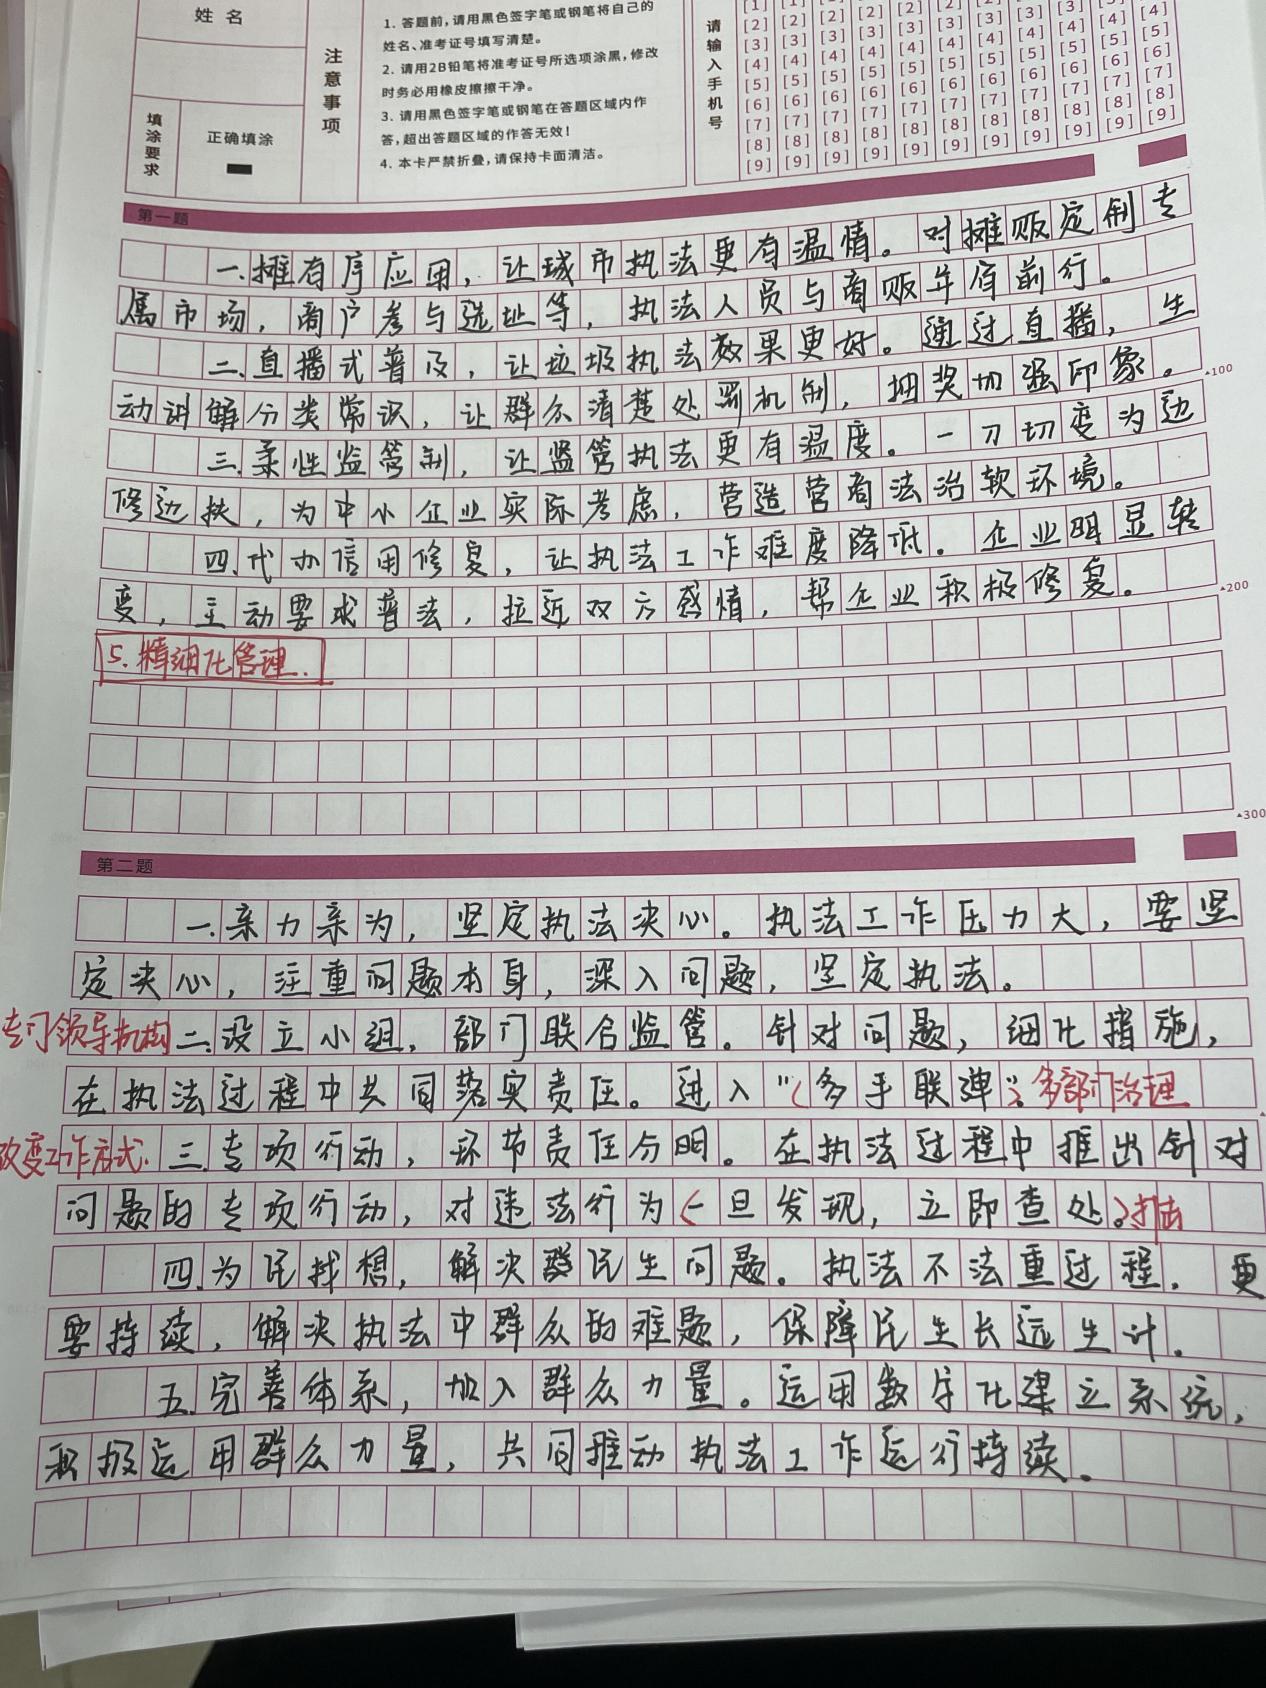 姓名
填涂要求
正确填涂
注意事项
1. 答题前,请用黑色签字笔或钢笔将自己的
姓名、准考证号填写清楚。
2. 请用2B铅笔将准考证号所选项涂黑,修改
时务必用橡皮擦擦干净。
3. 请用黑色签字笔或钢笔在答题区域内作
答,超出答题区域的作答无效!
4. 本卡严禁折叠,请保持卡面清洁。
请输入手机号
[1] [1] [1] [1] [2] [2] [3] [3] [3] [4] [4]
[2] [2] [2] [2] [3] [3] [4] [4] [4] [5] [5]
[3] [3] [3] [3] [4] [4] [5] [5] [5] [6] [6]
[4] [4] [4] [4] [5] [5] [6] [6] [6] [7] [7]
[5] [5] [5] [5] [6] [6] [7] [7] [7] [8] [8]
[6] [6] [6] [6] [7] [7] [8] [8] [8] [9] [9]
[7] [7] [7] [7] [8] [8] [9] [9] [9]
[8] [8] [8] [8] [9] [9]
[9] [9] [9] [9]
第一题
一、摊有序应用,让城市执法更有温情。对摊贩定制专
属市场,商户参与选址等,执法人员与商贩并肩前行。
二、直播式普及,让垃圾执法效果更好。通过直播,生
动讲解分类常识,让群众清楚处罚机制,抽奖加强印象。
100
三、柔性监管制,让监管执法更有温度。一刀切变为边
修边扶,为中小企业实际考虑,营造营商法治软环境。
四、代办信用修复,让执法工作难度降低。企业明显转
变,主动要求普法,拉近双方感情,帮企业积极修复。
200
5. 精细化管理.
300
第二题
一、亲力亲为,坚定执法决心。执法工作压力大,要坚
定决心,注重问题本身,深入问题,坚定执法。
专门领导机构 二、设立小组,部门联合监管。针对问题,细化措施,
在执法过程中共同落实责任。进入“多手联弹”。多部门治理
改变工作方式. 三、专项行动,环节责任分明。在执法过程中推出针对
问题的专项行动,对违法行为一旦发现,立即查处。打击
四、为民找想,解决群民生问题。执法不法重过程.更
要持续,解决执法中群众的难题,保障民生长远生计.
五、完善体系,加入群众力量。运用数字化建立系统,
积极运用群众力量,共同推动执法工作运行持续.